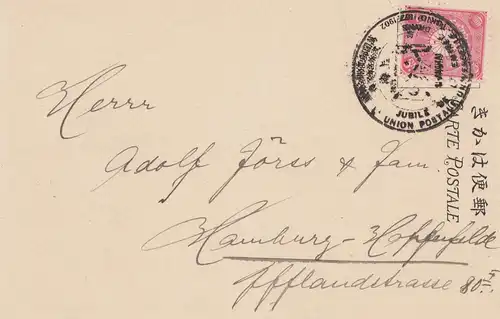 JUBILÉ DE
L'UNION POSTALE
1902
郵便はかき
CARTE POSTALE
Herrn
Adolf Jörss & Fam.
Hamburg-Hohenfelde
Ifflandstrasse 80 II.